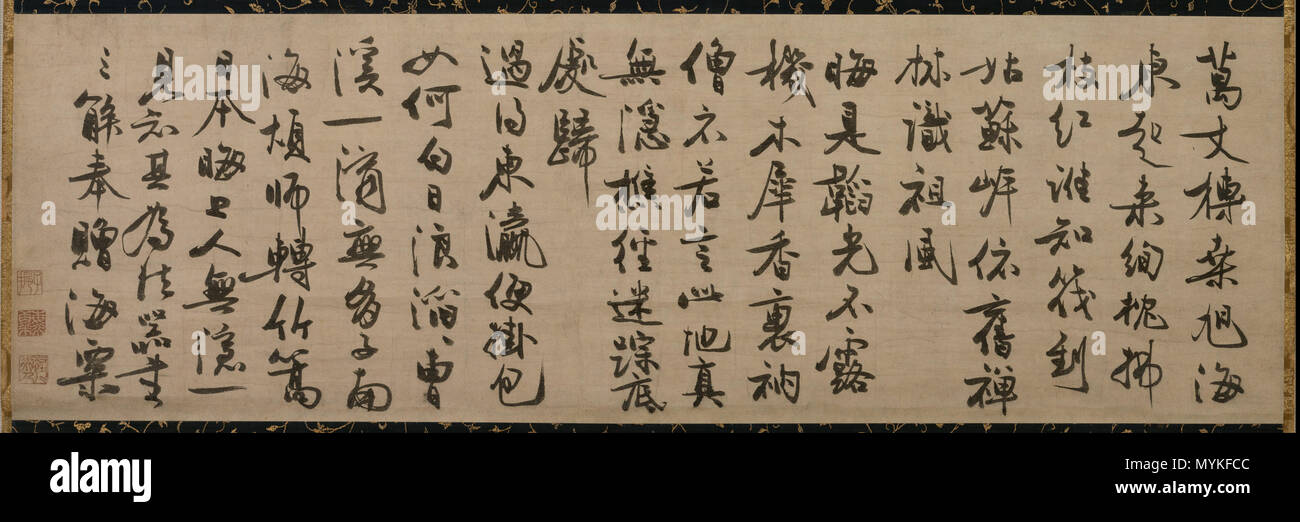 萬丈榑桒旭海
東起来絢枕拂
枝紅誰知筏到
姑蘇岸依舊禪
林識祖風
晦是韜光不露
機木犀香裏衲
僧衣若言此地真
無隱樵徑迷踪底
處歸
過得東瀛便掛包
如何白日浪滔〻曹
溪一滴無多子南
海煩師轉竹篙
日本晦上人無隱一
見知其為法器書
三解奉贈海粟
alamy
Image ID: MYKFCC
www.alamy.com